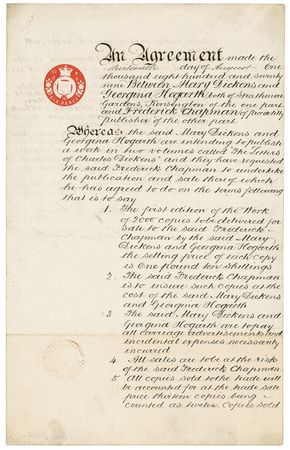 An Agreement made the
thirteenth day of August One
thousand eight hundred and seventy
nine Between Mary Dickens and
Georgina Hogarth both of Strathmore
Gardens, Kensington of the one part
and Frederick Chapman of Piccadilly
publisher of the other part.
Whereas the said Mary Dickens and
Georgina Hogarth are intending to publish
a work in two volumes called "The Letters
of Charles Dickens" and they have requested
the said Frederick Chapman to undertake
the publication and sale thereof which
he has agreed to do on the terms following
that is to say
1. The first edition of the Work
of 2000 copies to be delivered for
Sale to the said Frederick
Chapman by the said Mary
Dickens and Georgina Hogarth
the selling price of each copy
is One pound ten shillings
2. The said Frederick Chapman
is to insure such copies at the
cost of the said Mary Dickens
and Georgina Hogarth
3 The said Mary Dickens and
Georgina Hogarth are to pay
all carriage advertisements and
incidental expenses necessarily
incurred
4 All sales are to be at the risk
of the said Frederick Chapman
5 All copies sold to the trade will be
accounted for at the trade sale
price thirteen copies being
counted as twelve. Copies sold